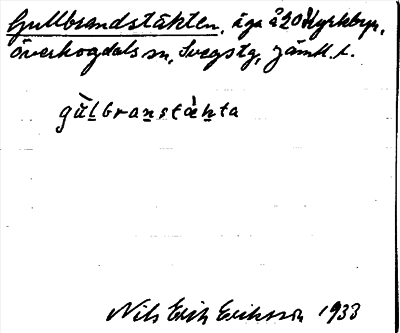 Gullbrandstäkten, äga å 20 Kyrkbyn,
Överhogdals sn, Svegs tg, Jämtl. l.
gu̇̀lbranstæ̀hta
Nils Erik Eriksson 1933